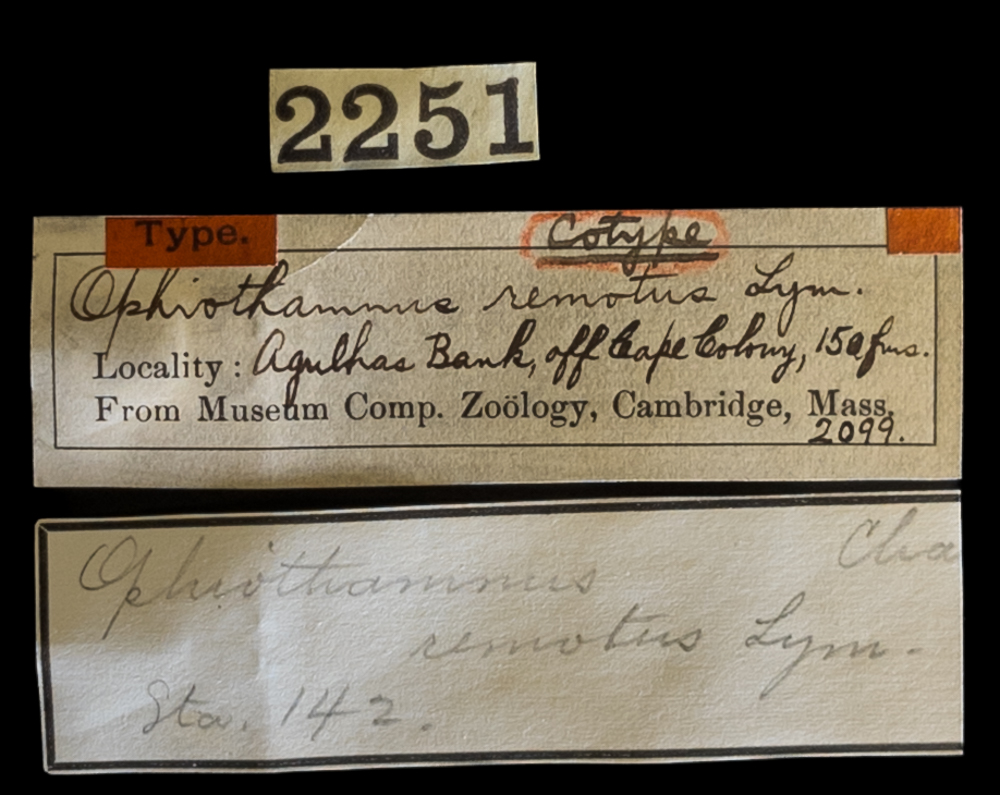 2251
Type.
Cotype
Ophiothamnus remotus Lym.
Locality: Agulhas Bank, off Cape Colony, 150 fms.
From Museum Comp. Zoölogy, Cambridge, Mass.
2099.
Ophiothamnus
Cha
remotus Lym.
Sta. 142.